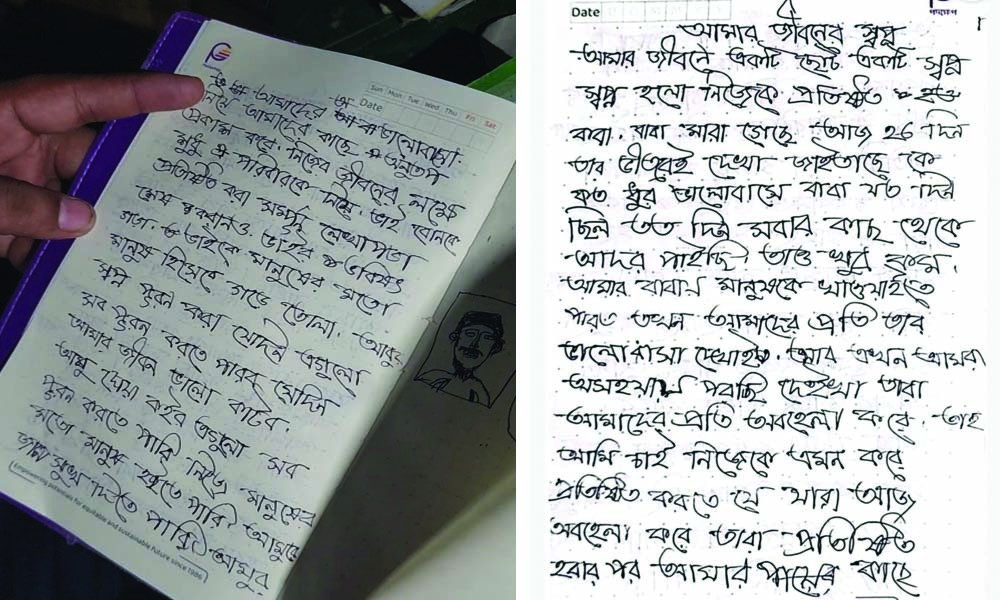 Sun Mon Tue Wed Thu Fri Sat
Date
আমাদের ভালোবাসা
নিয়ে আমাদের কাছে অনুতপ
প্রকাশ করে। নিজের জীবনের লক্ষে
শুধু পরিবারকে নিয়ে। ভাই বোনকে
প্রতিষ্ঠিত করা সমপূর্ন লেখাপড়া
শেষ করানও ভাইর ভবিষৎ
গড়া। ভাইকে মানুষের মতো
মানুষ হিসেবে গড়ে তোলা। আব্বুর
স্বপ্ন পুরন করা যেদিন এগুলো
সব পুরন করতে পারব সেদিন
আমার জীবন ভালো কাটবে।
আম্মু দোয়া কইর এগুলো সব
পুরন করতে পারি নিজে মানুষের
মতো মানুষ হইতে পারি আম্মুরে
সুখ দিতে পারি। আব্বুর
Empowering potentials for equitable and sustainable future since 1986
Date
পদক্ষেপ
আমার জীবনের স্বপ্ন
আমার জীবনে একটি ছোট একটি স্বপ্ন
স্বপ্ন হলো নিজেকে প্রতিষ্ঠিত হওয়া
বাবা। বাবা মারা গেছে আজ ২৬ দিন
তার ভীতরেই দেখা জাইতাছে কে
কত ধুর ভালোবাসে বাবা যত দিন
ছিল তত দিন সবার কাছ থেকে
আদর পাইছি। তাও খুব কম।
আমার বাবায় মানুষকে খাওয়াইতে
পারত তখন আমাদের প্রতি তার
ভালোবাসা দেখাইত। আর এখন আমরা
অসহয়ায় পরছি দেইখা তারা
আমাদের প্রতি অবহেলা করে। তাই
আমি চাই নিজেকে এমন করে
প্রতিষ্ঠিত করতে যে যারা আজ
অবহেলা করে তারা প্রতিষ্ঠিত
হবার পর আমার পায়ের কাছে